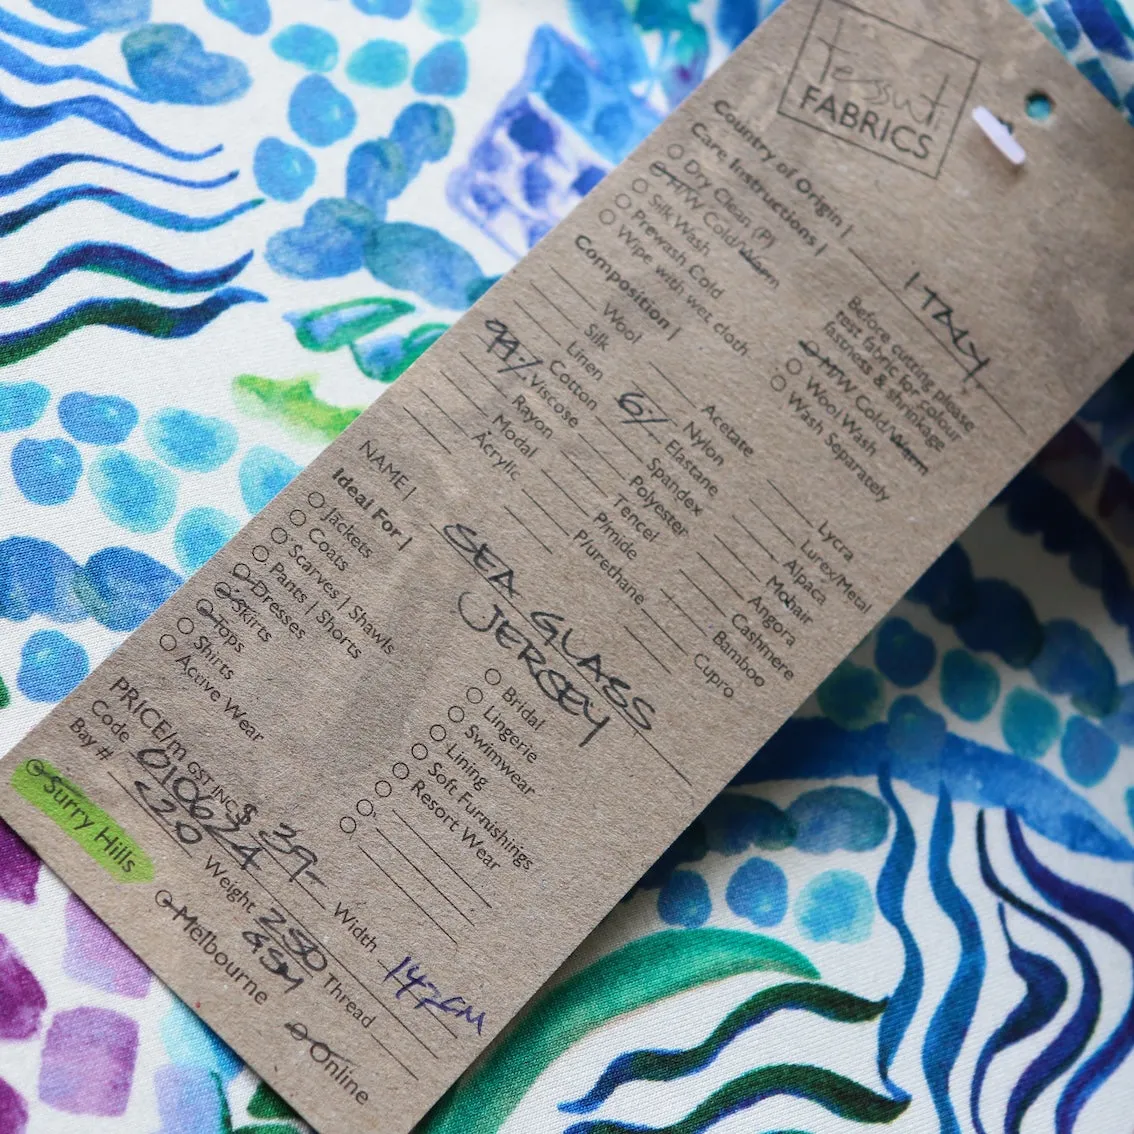 Tessuti
FABRICS
Country of Origin | ITALY
Care Instructions |
Dry Clean (P)
H/W Cold/Warm
Silk Wash
Prewash Cold
Wipe with wet cloth
Before cutting please
test fabric for colour
fastness & shrinkage
M/W Cold/Warm
Wool Wash
Wash Separately
Composition |
Wool
Silk
Linen
Cotton
Viscose
Rayon
Modal
Acrylic
Acetate
Nylon
6% Elastane
Spandex
Polyester
Tencel
P/mide
P/urethane
Lycra
Lurex/Metal
Alpaca
Mohair
Angora
Cashmere
Bamboo
Cupro
NAME | SEA GLASS
JERSEY
Ideal For |
Jackets
Coats
Scarves | Shawls
Pants | Shorts
Dresses
Skirts
Tops
Shirts
Active Wear
Bridal
Lingerie
Swimwear
Lining
Soft Furnishings
Resort Wear
PRICE/m GST INC. $ 39-
Width 142cm
Code
Weight 250
GSM
Thread
Bay #
Surry Hills
Melbourne
Online